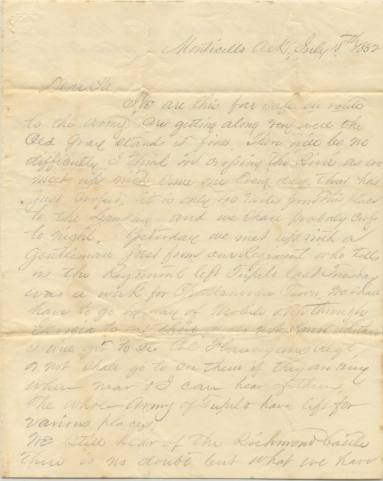 Monticello Ark, July 1862
Dear Pa
We are this far safe on route
to the Army are getting along very well the
Old Gray stand it fine. There will be no
difficulty I think in crossing the River as we
meet up with some one every day that has
just crossed, it is only miles from this place
to the and we shall probaly
to night. Yesterday we met up with a
Gentleman just from our Regiment who tells
us the Regiment left Tupelo last
was a week for Chattanooga Tenn, we shall
have to go by way of Mobile through
to get there
is we get to see Col regt
or not shall go to see them if they are any
where near & I can hear of them,
The whole Army of Tupelo have left for
various places,
We still hear of the Richmond battle
there is no doubt but what we have